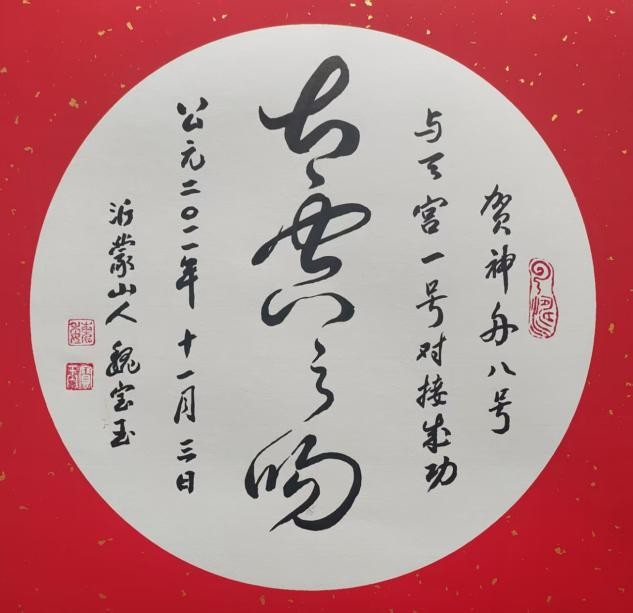 贺神舟八号
与天宫一号对接成功
太空之吻
公元二〇一一年十一月三日
沂蒙山人魏宝玉